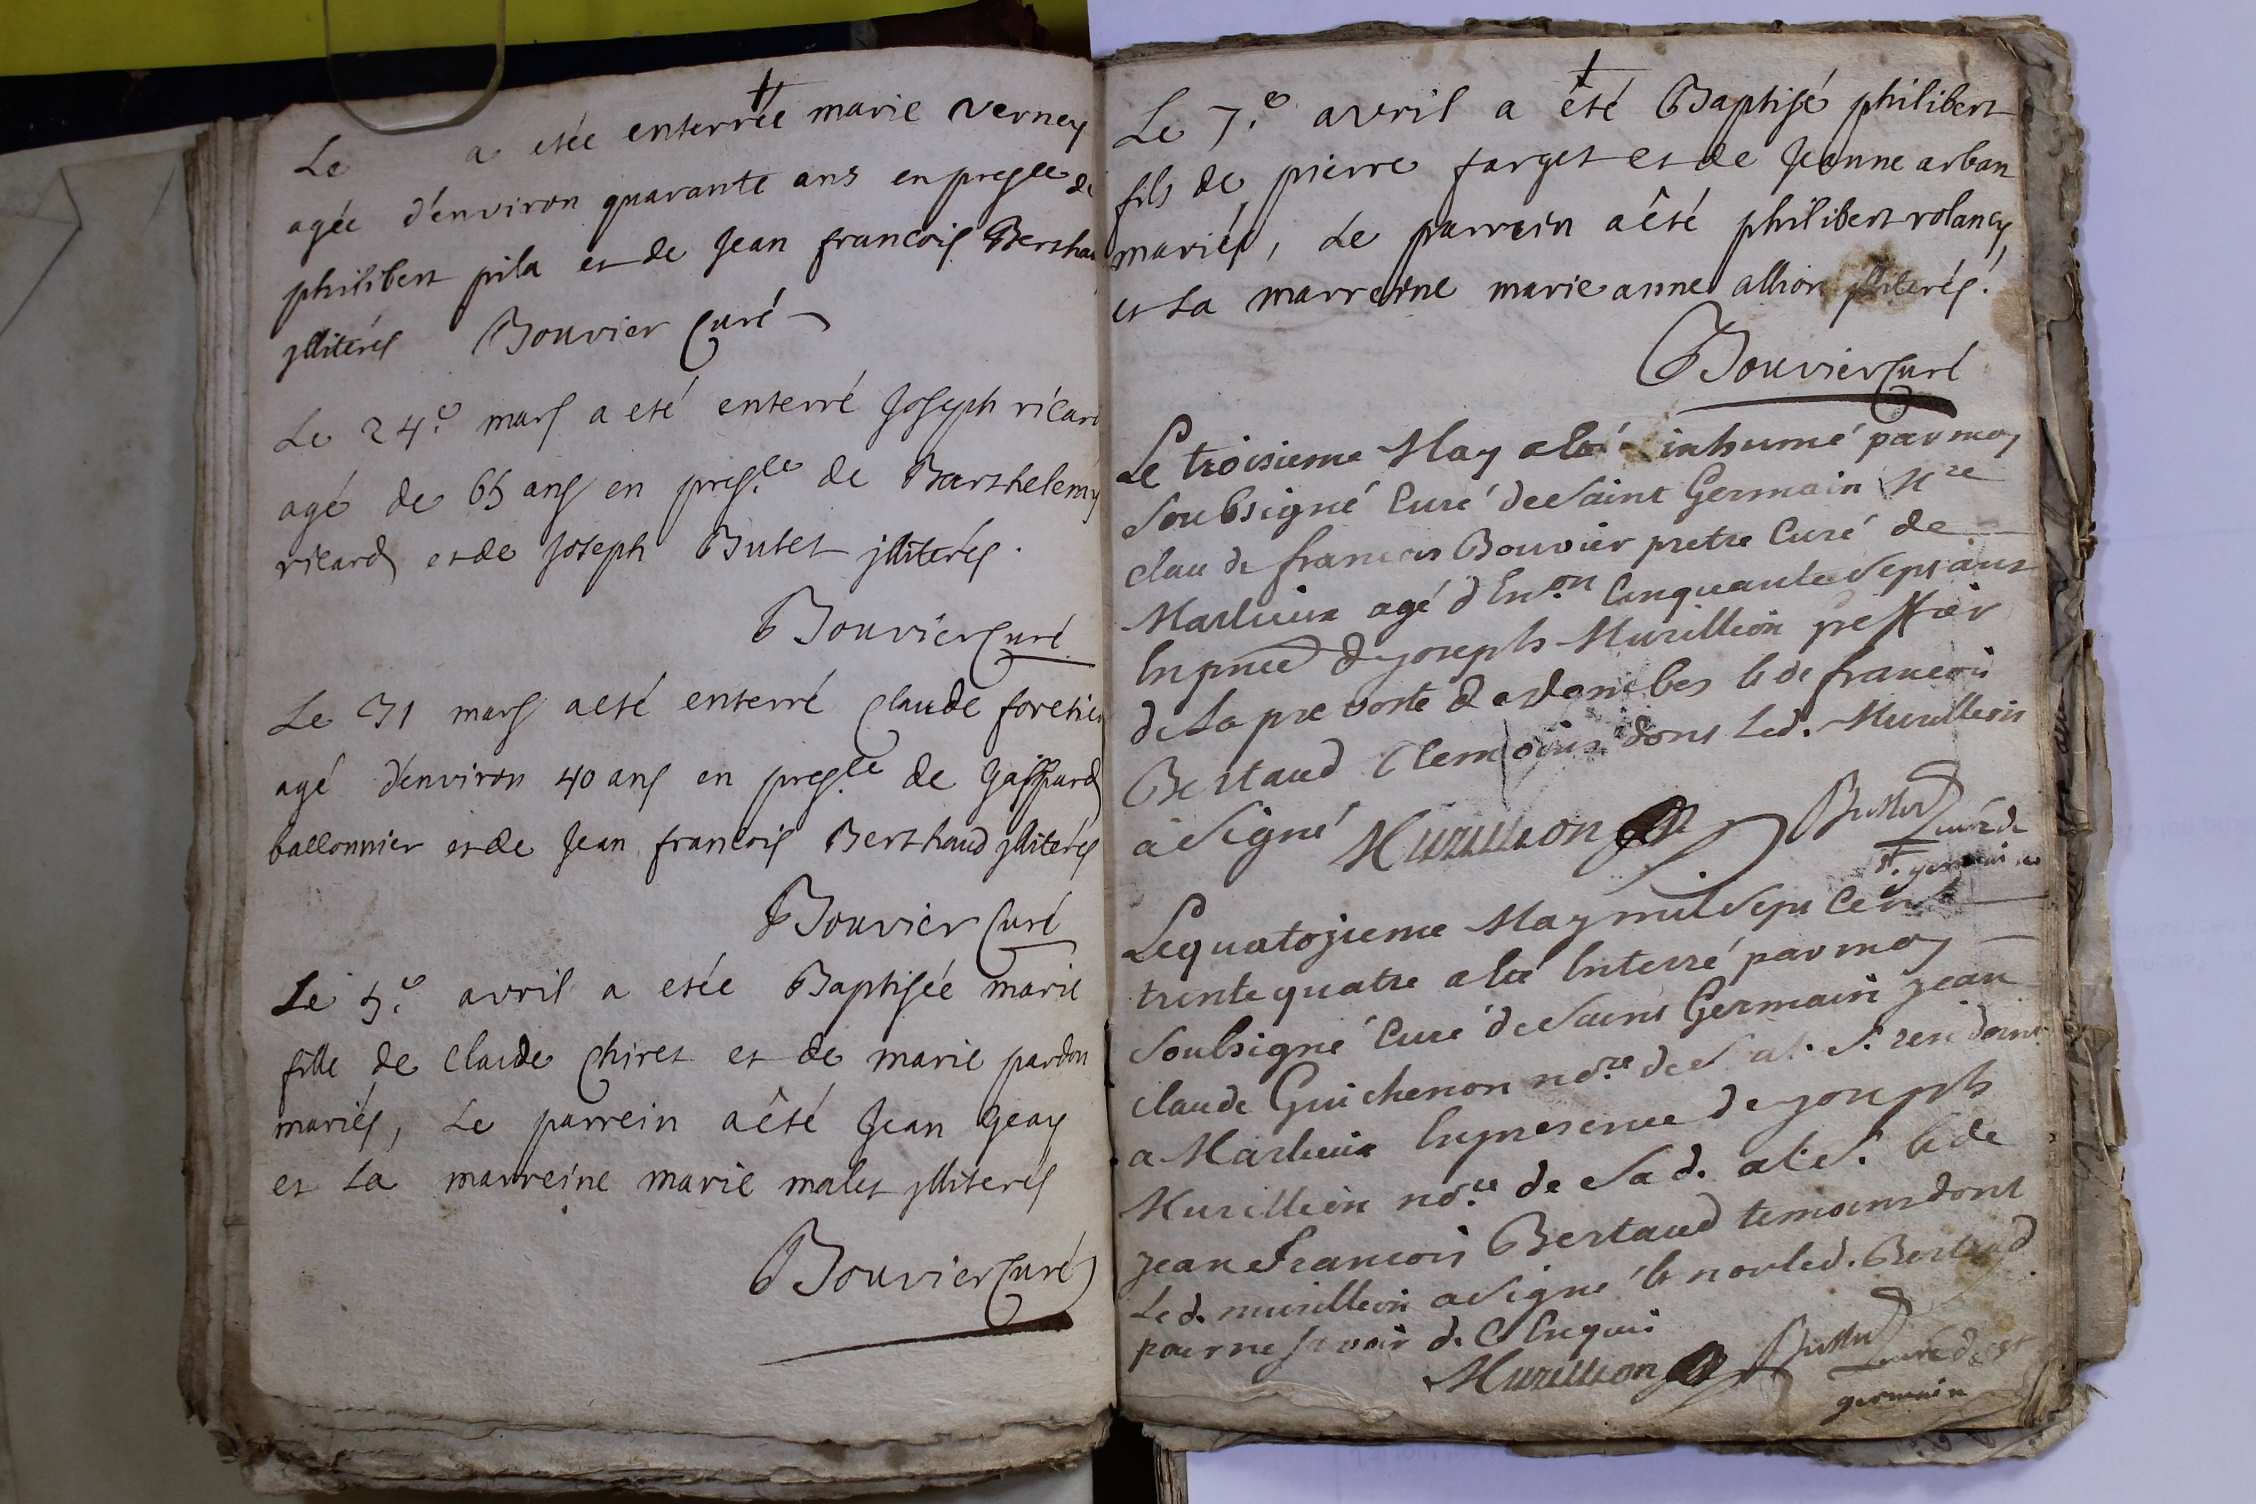 Le a etée enterrée marie verney
agée d'environ quarante ans en presce de
philibert pila et de Jean francois Bertha
jlliterés Bouvier Curé
Le 24.e mars a eté enterré Joseph ricard
agé de 65 ans en presce de Barthelemy
ricard et de Joseph Butet jlliterés.
Bouvier Curé
Le 31 mars a eté enterré Claude foretier
agé d'environ 40 ans en presce de Gaspard
ballonnier et de Jean francois Berthaud jlliterés
Bouvier Curé
Le 5.e avril a etée Baptisée marie
fille de Claude Chiret et de marie pardon
mariés, Le parrein a êté Jean Geay
et La marreine marie malet jlliterés
Bouvier Curé
Le 7.e avril a êté Baptisé philibert
fils de pierre farget et de Jeanne arban
mariés, Le parrein a êté philibert rolancy,
et La marreine marie anne allion jlliterés.
Bouvier Curé
Le troisieme May a eté inhumé par moy
Soubsigné Curé de Saint Germain Mre
claude francois Bouvier pretre Curé de
Marlieux agé d'En.on Cinquante Sept ans
En pnce de joseph Murillion greffier
de La prevosté de dombes & de francois
Bertaud temoins dont Led. Murillion
a Signé Murillion curé de
st. germain
Le quatozieme May mil Sept Cent
trente quatre a eté Enterré par moy
Soubsigné Curé de Saint Germain jean
claude Guichenon no.re de S. a. S. residant
a Marlieux En presence de joseph
Murillion no.re de Sa d. a. S. & de
jean francois Bertaud temoins dont
Led. murillion a Signé & non led. Bertaud
pour ne scavoir de ce Enquis
Murillion curé de st
germain